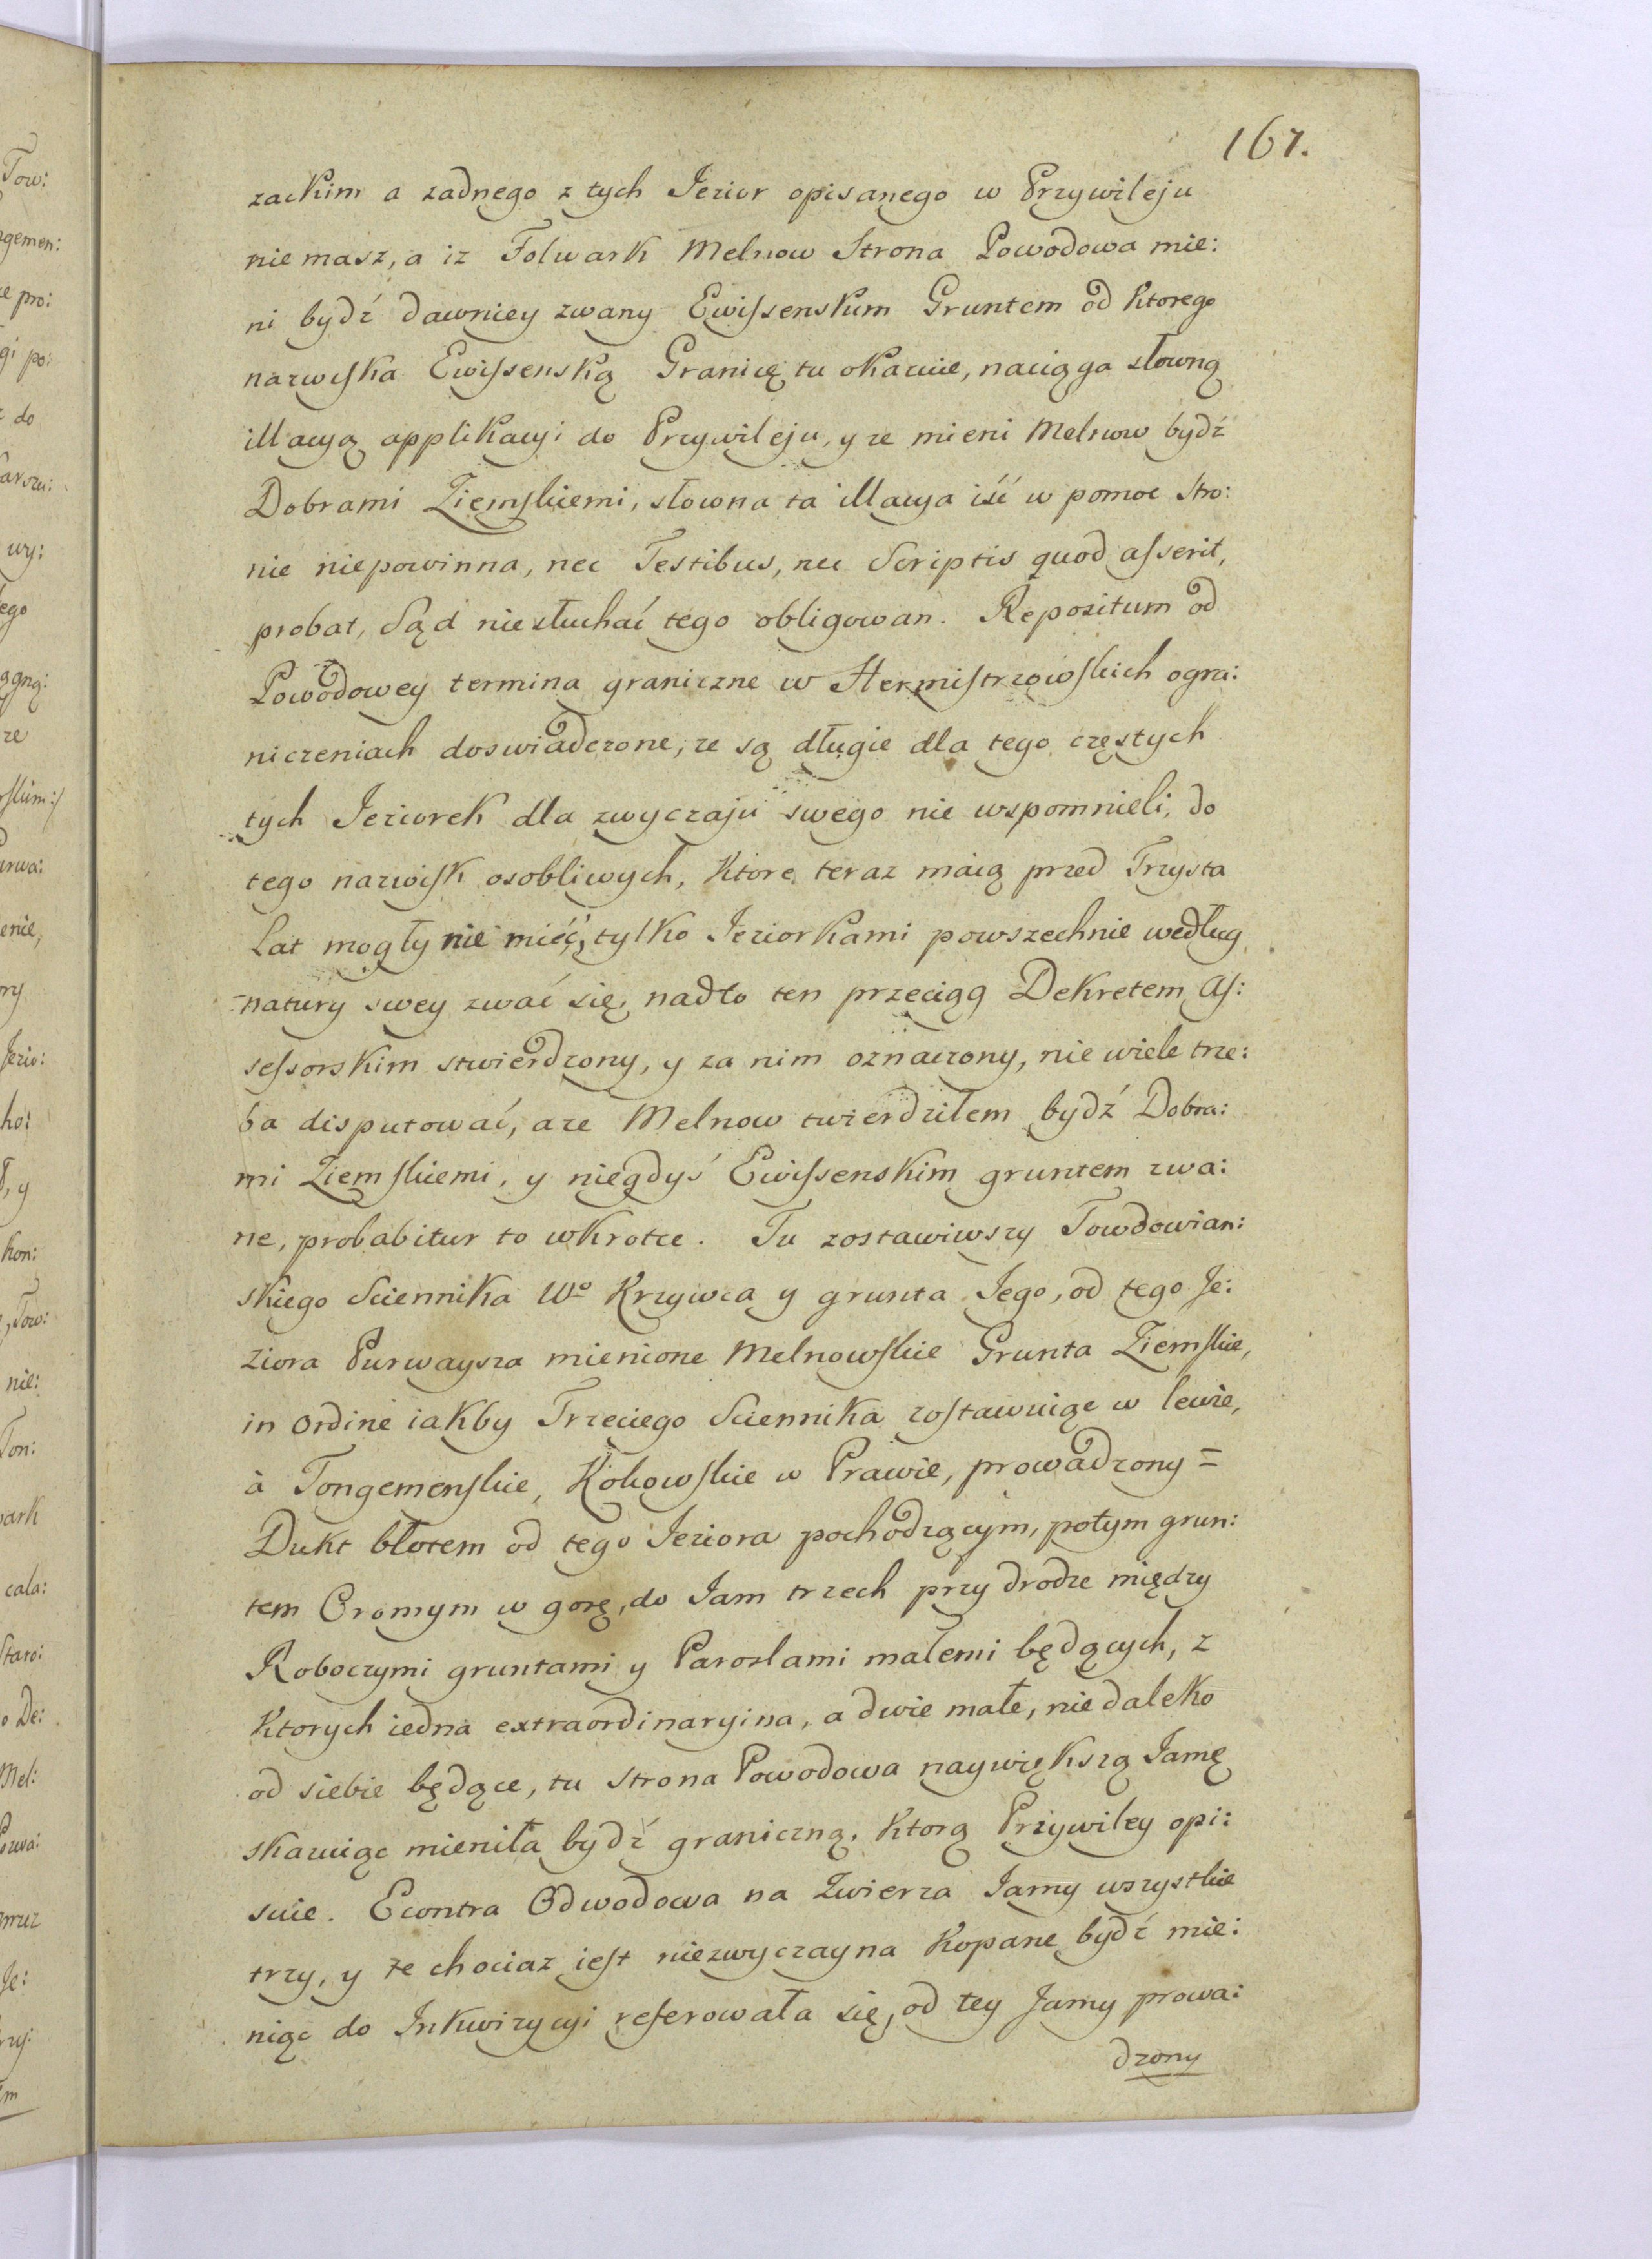 167.
zackim a zadnego z tych Jezior opisanego w Przywileju
nie masz, a iz Folwark Melnow Strona Powodowa mie:
ni bydź dawniey zwany Ewissenskim Gruntem od ktorego
nazwiska Ewissenską Granicę tu okazuie, naciąga słowną
illacyą applikacyi do Przywileju, y ze mieni Melnow bydź
Dobrami Ziemskiemi, słowna ta illacya iść w pomoc Stro:
nie niepowinna, nec Testibus, nec Scriptis quod asserit,
probat, Sąd niesłuchać tego obligowan. Repositum od
Powodowey termina graniczne w Hermistrzowskich ogra:
niczeniach doswiadczone, ze są długie dla tego częstych
tych Jeziorek dla zwyczaju swego nie wspomnieli, do
tego nazwisk osobliwych, ktore teraz maią przed Trzysta
Lat mogły nie mieć, tylko Jeziorkami powszechnie według
natury swey zwać się, nadto ten przeciąg Dekretem As:
sessorskim stwierdzony, y za nim oznaczony, nie wiele trze:
ba disputować, aze Melnow twierdziłem bydź Dobra:
mi Ziemskiemi, y niegdyś Ewissenskim gruntem zwa:
ne, probabitur to wkrotce. Tu zostawiwszy Towdowian:
skiego Sciennika Wo Krzywca y grunta Jego, od tego Je:
ziora Purwaysza mienione Melnowskie Grunta Ziemskie,
in ordine iakby Trzeciego Sciennika zostawuiąc w lewie,
à Tongemenskie, Kokowskie w Prawie, prowadzony =
Dukt błotem od tego Jeziora pochodzącym, potym grun:
tem Oromym w gorę, do Jam trzech przy drodze między
Roboczymi gruntami y Paroslami małemi będących, z
ktorych iedna extraordinaryina, a dwie małe, nie daleko
od siebie będące, tu strona Powodowa naywiększą Jamę
skazuiąc mieniła bydź graniczną, ktorą Przywiley opi:
suie. Econtra Odwodowa na Zwierza Jamy wszystkie
trzy, y ze chociaz iest niezwyczayna kopane bydź mie:
niąc do Inkwizycyi referowała się, od tey Jamy prowa:
dzony